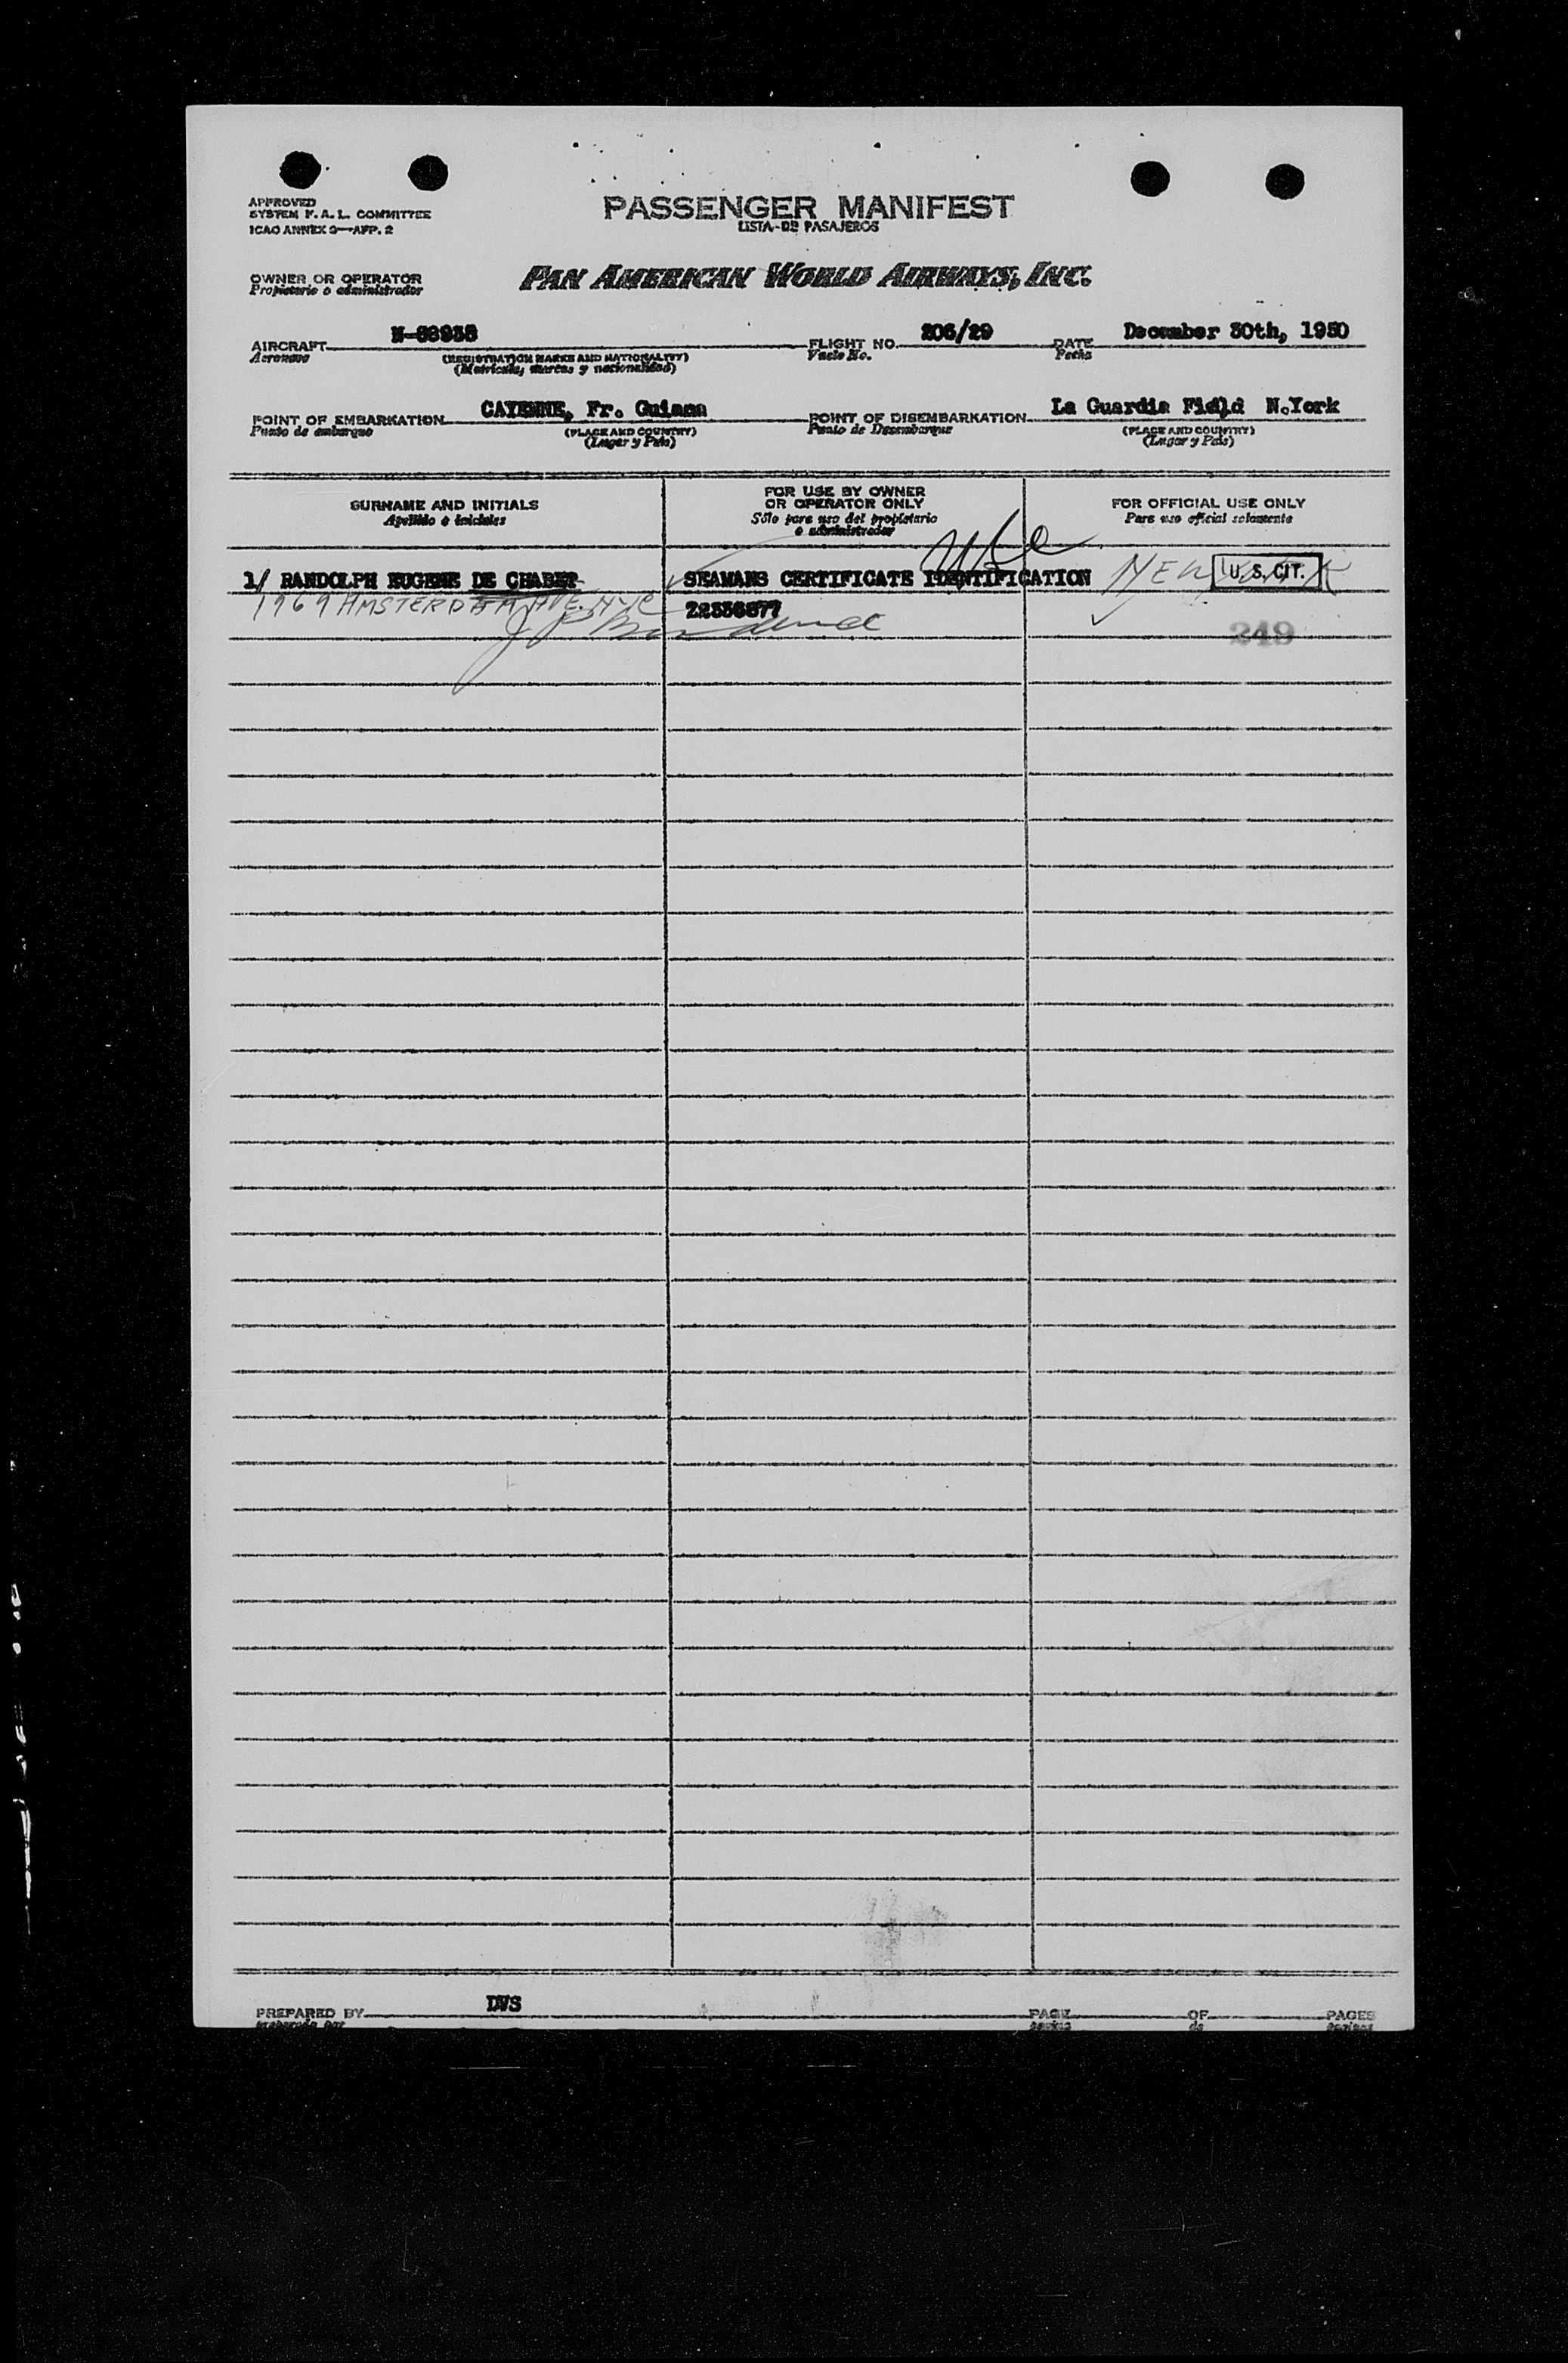 APPROVED
SYSTEM F. A. L. COMMITTEE
ICAO ANNEX 9—APP. 2
PASSENGER MANIFEST
LISTA DE PASAJEROS
OWNER OR OPERATOR
Propietario o administrador
PAN AMERICAN WORLD AIRWAYS, INC.
AIRCRAFT FLIGHT NO. 206/29 DATE December 30th, 1950
Aeronave Vuelo No. Fecha
(REGISTRATION MARKS AND NATIONALITY)
(Matricula, marcas y nacionalidad)
POINT OF EMBARKATION CAYENNE, Fr. Guiana POINT OF DISEMBARKATION La Guardia Field N.York
Punto de embarque Punto de Desembarque
(PLACE AND COUNTRY) (PLACE AND COUNTRY)
(Lugar y País) (Lugar y País)
SURNAME AND INITIALS
Apellido e iniciales
FOR USE BY OWNER
OR OPERATOR ONLY
Sólo para uso del propietario
o administrador
FOR OFFICIAL USE ONLY
Para uso oficial solamente
1/ RANDOLPH EUGENE DE CHABET SEAMANS CERTIFICATE IDENTIFICATION NEW YORK U. S. CIT.
1969 AMSTERDAM AVE. NYC
249
PREPARED BY DVS PAGE OF PAGES
Preparado por página de páginas